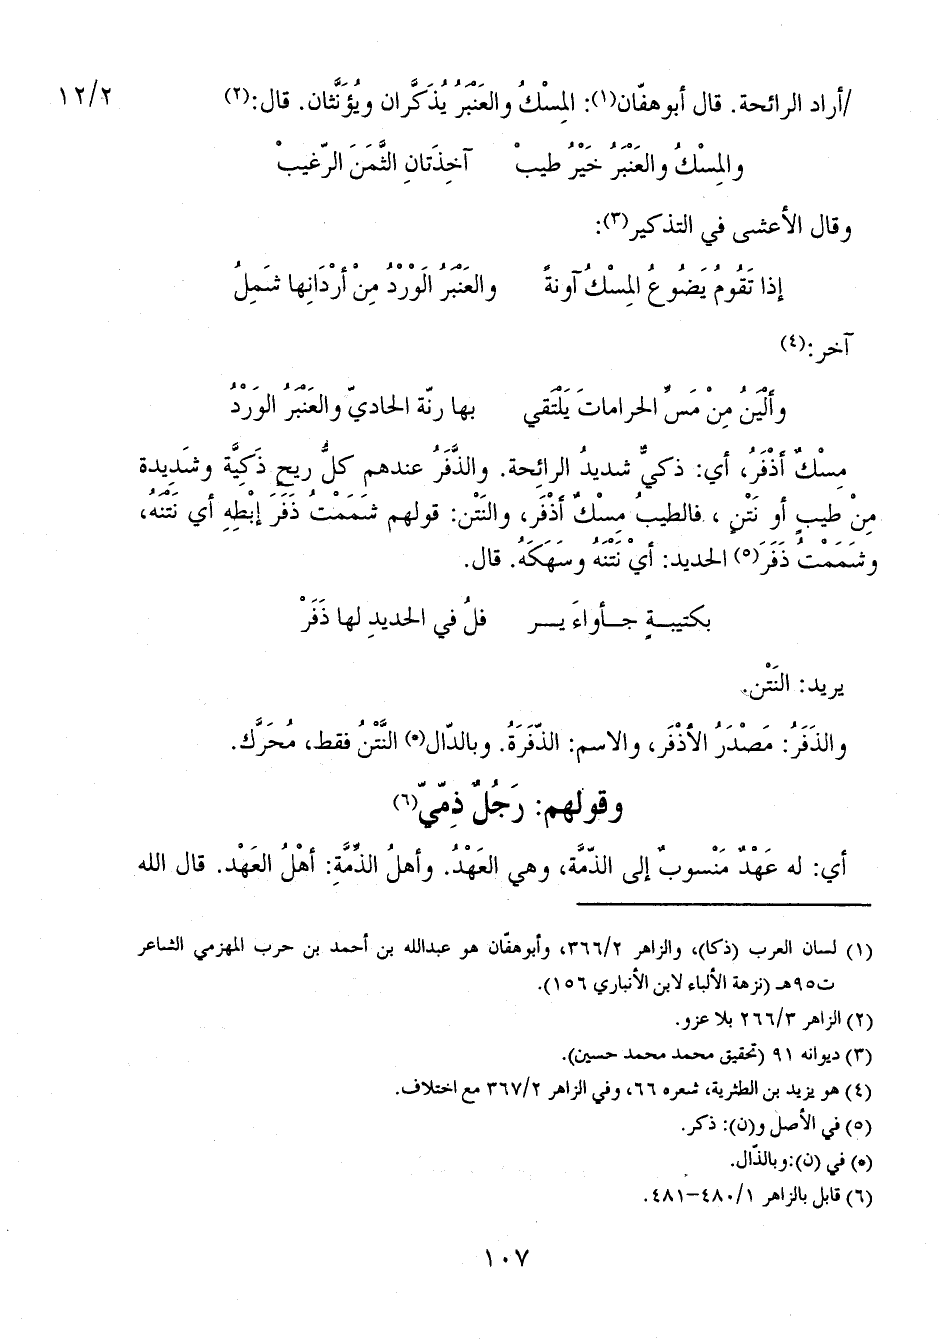 /أراد الرائحة. قال أبوهفّان(١): المِسْكُ والعَنْبَرُ يُذكَّران ويُؤنَّثان. قال:(٢) ١٢/٢
والمِسْكُ والعَنْبَرُ خَيْرُ طيبْ آخِذَتانِ الثَّمَنَ الرّغيبْ
وقال الأعشى في التذكير(٣):
إذا تَقُومُ يَضُوعُ المِسْكُ آونةً والعَنْبَرُ الوَرْدُ مِنْ أرْدَانِها شَمِلُ
آخر:(٤)
وأَلْيَنُ مِنْ مَسِّ الحرامات يَلْتَقي بها رنّة الحاديّ والعَنْبَرُ الوَرْدُ
مِسْكٌ أذْفَرُ، أي: ذكيٌّ شديدُ الرائحة. والذَّفَرُ عندهم كلُّ ريحٍ ذَكِيَّة وشَدِيدة
مِنْ طيبٍ أو نَتْنٍ، فالطيبُ مِسْكٌ أذْفَر، والنَتْن: قولهم شَمَمْتُ ذَفَرَ إبْطِهِ أي نَتْنَهُ،
وشَمَمْتُ ذَفَرَ(٥) الحديد: أيْ نَتْنَهُ وسَهَكَهُ. قال.
بكتيبةٍ جأواءَ ير فلُ في الحديدِ لها ذَفَرْ
يريد: النَتْن.
والذَفَرُ: مَصْدَرُ الأذْفَر، والاسم: الذّفَرَةُ. وبالدّال(*) النَّتْنُ فقط، مُحَرَّك.
وقولهم: رَجُلٌ ذِمّيّ(٦)
أي: له عَهْدٌ مَنْسوبٌ إلى الذّمَّة، وهي العَهْدُ. وأهلُ الذِّمَّةِ: أهْلُ العَهْد. قال الله
(١) لسان العرب (ذكا)، والزاهر ٣٦٦/٢، وأبوهفّان هو عبدالله بن أحمد بن حرب المهزمي الشاعر
ت٩٥هـ (نزهة الألباء لابن الأنباري ١٥٦).
(٢) الزاهر ٢٦٦/٣ بلا عزو.
(٣) ديوانه ٩١ (تحقيق محمد محمد حسين).
(٤) هو يزيد بن الطثرية، شعره ٦٦، وفي الزاهر ٣٦٧/٢ مع اختلاف.
(٥) في الأصل و(ن): ذكر.
(*) في (ن):وبالذّال.
(٦) قابل بالزاهر ٤٨٠/١–٤٨١.
١٠٧